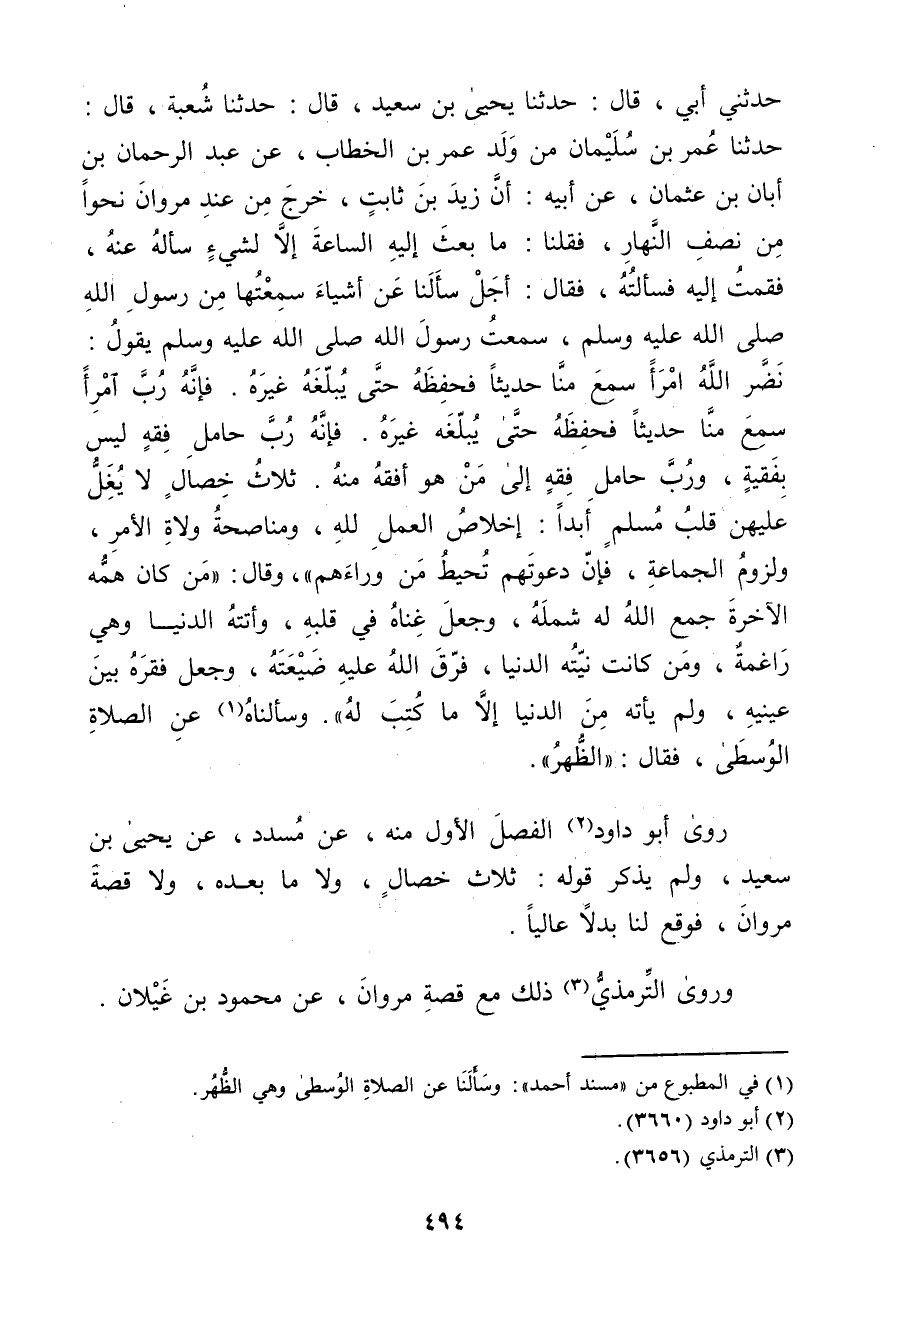 حدثني أبي ، قال : حدثنا يحيىٰ بن سعيد ، قال : حدثنا شُعبة ، قال :
حدثنا عُمر بن سُلَيْمان من وَلَد عمر بن الخطاب ، عن عبد الرحمان بن
أبان بن عثمان ، عن أبيه : أنَّ زيدَ بنَ ثابتٍ ، خرجَ مِن عندِ مروانَ نحواً
مِن نصفِ النَّهارِ ، فقلنا : ما بعثَ إليهِ الساعةَ إلَّا لشيءٍ سألهُ عنهُ ،
فقمتُ إليه فسألتُهُ ، فقال : أجَلْ سألَنا عَن أشياءَ سمِعْتُها مِن رسولِ اللهِ
صلى الله عليه وسلم ، سمعتُ رسولَ الله صلى الله عليه وسلم يقولُ :
نَضَّر اللَّهُ امْرَأً سمِعَ منَّا حديثاً فحفِظَهُ حتَّى يُبلّغَهُ غيرَهُ . فإنَّهُ رُبَّ آمْرأً
سمِعَ منَّا حديثاً فحفِظَهُ حتَّىٰ يُبلّغَه غيرَهُ . فإنَّهُ رُبَّ حاملِ فِقهٍ ليس
بِفَقيةٍ ، ورُبَّ حاملِ فِقهٍ إلىٰ مَنْ هو أفقهُ منهُ . ثلاثُ خِصالٍ لا يُغَلُّ
عليهن قلبُ مُسلمٍ أبداً : إخلاصُ العملِ للهِ ، ومناصحةُ ولاةِ الأمرِ ،
ولزومُ الجماعةِ ، فإنّ دعوتَهم تُحيطُ مَن وراءَهم»، وقال: «مَن كان همُّه
الآخرةَ جمع اللهُ له شملَهُ ، وجعلَ غِناهُ في قلبهِ ، وأتتهُ الدنيا وهي
رَاغمةٌ ، ومَن كانت نيّتُه الدنيا ، فرّقَ اللهُ عليهِ ضَيْعَتَهُ ، وجعل فقرَهُ بينَ
عينيهِ ، ولم يأته مِنَ الدنيا إلَّا ما كُتِبَ لهُ». وسألناهُ(١) عنِ الصلاةِ
الوُسطَىٰ ، فقال : «الظُّهرُ».
روىٰ أبو داود(٢) الفصلَ الأول منه ، عن مُسدد ، عن يحيىٰ بن
سعيد ، ولم يذكر قوله : ثلاث خصالٍ ، ولا ما بعده ، ولا قصةَ
مروانَ ، فوقع لنا بدلًا عالياً .
وروىٰ التِّرمذيُّ(٣) ذلك مع قصةِ مروانَ ، عن محمود بن غَيْلان .
(١) في المطبوع من «مسند أحمد»: وسَأَلَنَا عن الصلاةِ الوُسطىٰ وهي الظُّهُر.
(٢) أبو داود (٣٦٦٠).
(٣) الترمذي (٣٦٥٦).
٤٩٤